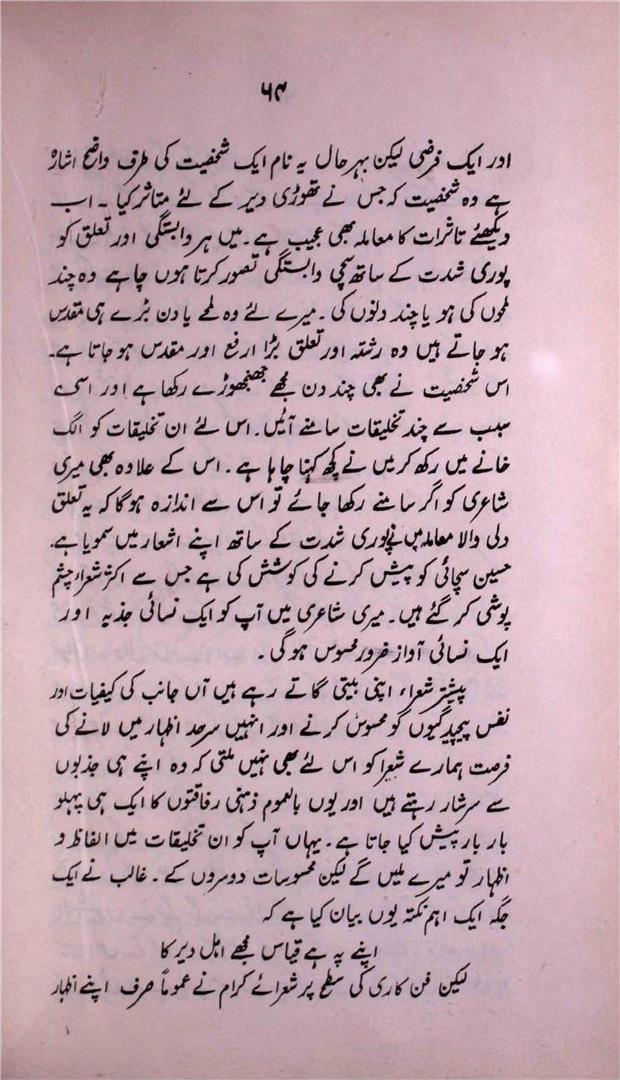 ۶۴
اور ایک فرضی لیکن بہر حال یہ نام ایک شخصیت کی طرف واضح اشارہ
ہے وہ شخصیت کہ جس نے تھوڑی دیر کے لئے متاثر کیا ۔ اب
دیکھئے تاثرات کا معاملہ بھی عجیب ہے۔ میں ہر وابستگی اور تعلق کو
پوری شدت کے ساتھ سچی وابستگی تصور کرتا ہوں چاہے وہ چند
لمحوں کی ہو یا چند دلنوں کی ۔ میرے لئے وہ لمحے یا دن بڑے ہی مقدس
ہو جاتے ہیں وہ رشتہ اور تعلق بڑا ارفع اور مقدس ہو جاتا ہے۔
اس شخصیت نے بھی چند دن مجھے جھنجھوڑے رکھا ہے اور اسی
سبب سے چند تخلیقات سامنے آئیں۔ اس لئے ان تخلیقات کو الگ
خانے میں رکھ کر میں نے کچھ کہنا چاہا ہے ۔ اس کے علاوہ بھی میری
شاعری کو اگر سامنے رکھا جائے تو اس سے اندازہ ہوگا کہ یہ تعلق
دلی والا معاملہ میں نے پوری شدت کے ساتھ اپنے اشعار میں سمویا ہے۔
حسین سچائی کو پیش کرنے کی کوشش کی ہے جس سے اکثر شعراء چشم
پوشی کر گئے ہیں ۔ میری شاعری میں آپ کو ایک نسائی جذبہ اور
ایک نسائی آواز ضرور محسوس ہوگی ۔
پیشتر شعراء اپنی بیتی گاتے رہے ہیں آں جانب کی کیفیات اور
نفس پیچیدگیوں کو محسوس کرنے اور انہیں سرحد اظہار میں لانے کی
فرصت ہمارے شعرا کو اس لئے بھی نہیں ملتی کہ وہ اپنے ہی جذبوں
سے سرشار رہتے ہیں اور یوں بالعموم ذہنی رفاقتوں کا ایک ہی پہلو
بار بار پیش کیا جاتا ہے ۔ یہاں آپ کو ان تخلیقات میں الفاظ و
اظہار تو میرے ملیں گے لیکن محسوسات دوسروں کے ۔ غالب نے ایک
جگہ ایک اہم نکتہ یوں بیان کیا ہے کہ
اپنے پہ ہے قیاس مجھے اہل دیر کا
لیکن فن کاری کی سطح پر شعرائے کرام نے عموماً صرف اپنے اظہار